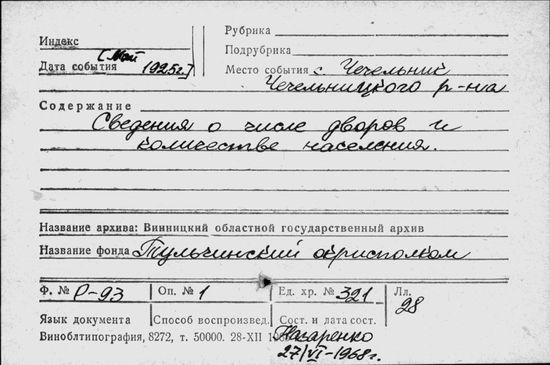 Рубрика
Индекс
Подрубрика
Дата события [Май 1925г.]
Место события с. Чечельник
Чечельницкого р-на
Содержание
Сведения о числе дворов и
количестве населения.
Название архива: Винницкий областной государственный архив
Название фонда Тульчинский окрисполком
Ф. № Р-93 Оп. № 1 Ед. хр. № 321 Лл. 28
Язык документа Способ воспроизвед. Сост. и дата сост.
Виноблтипография, 8272, т. 50000. 28-XII
Назаренко
27/VI-1968г.